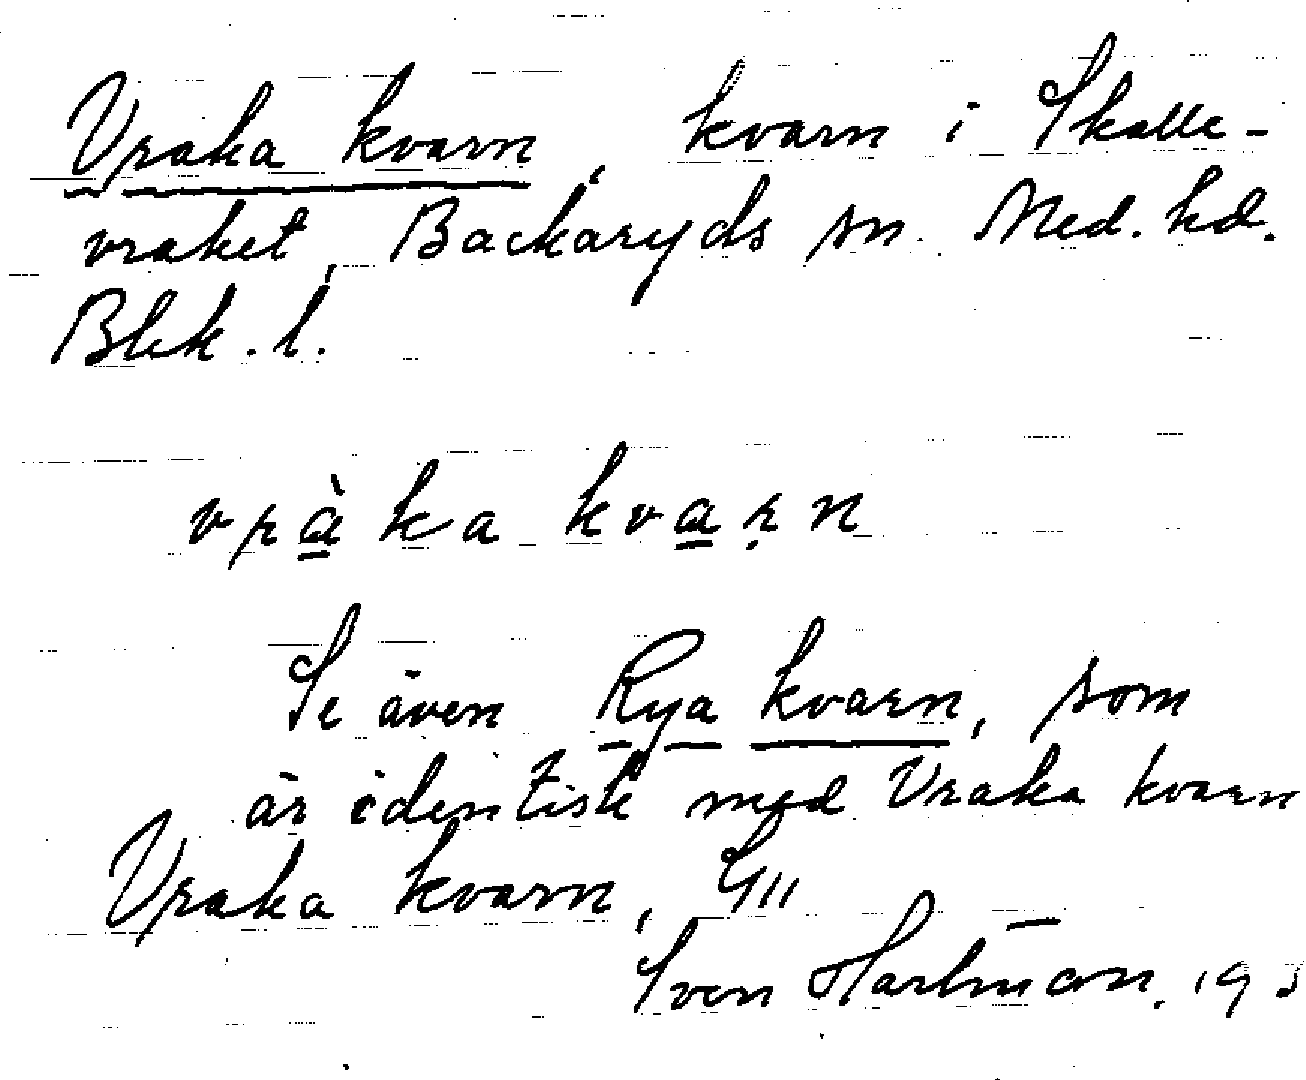 Vraka kvarn, kvarn i Skalle-
vraket, Backaryds sn. Med. hd.
Blek. l.
vràka kvaṛn
Se även Rya kvarn, som
är identisk med Vraka kvarn
Vraka kvarn,
Sven Hartman, 193